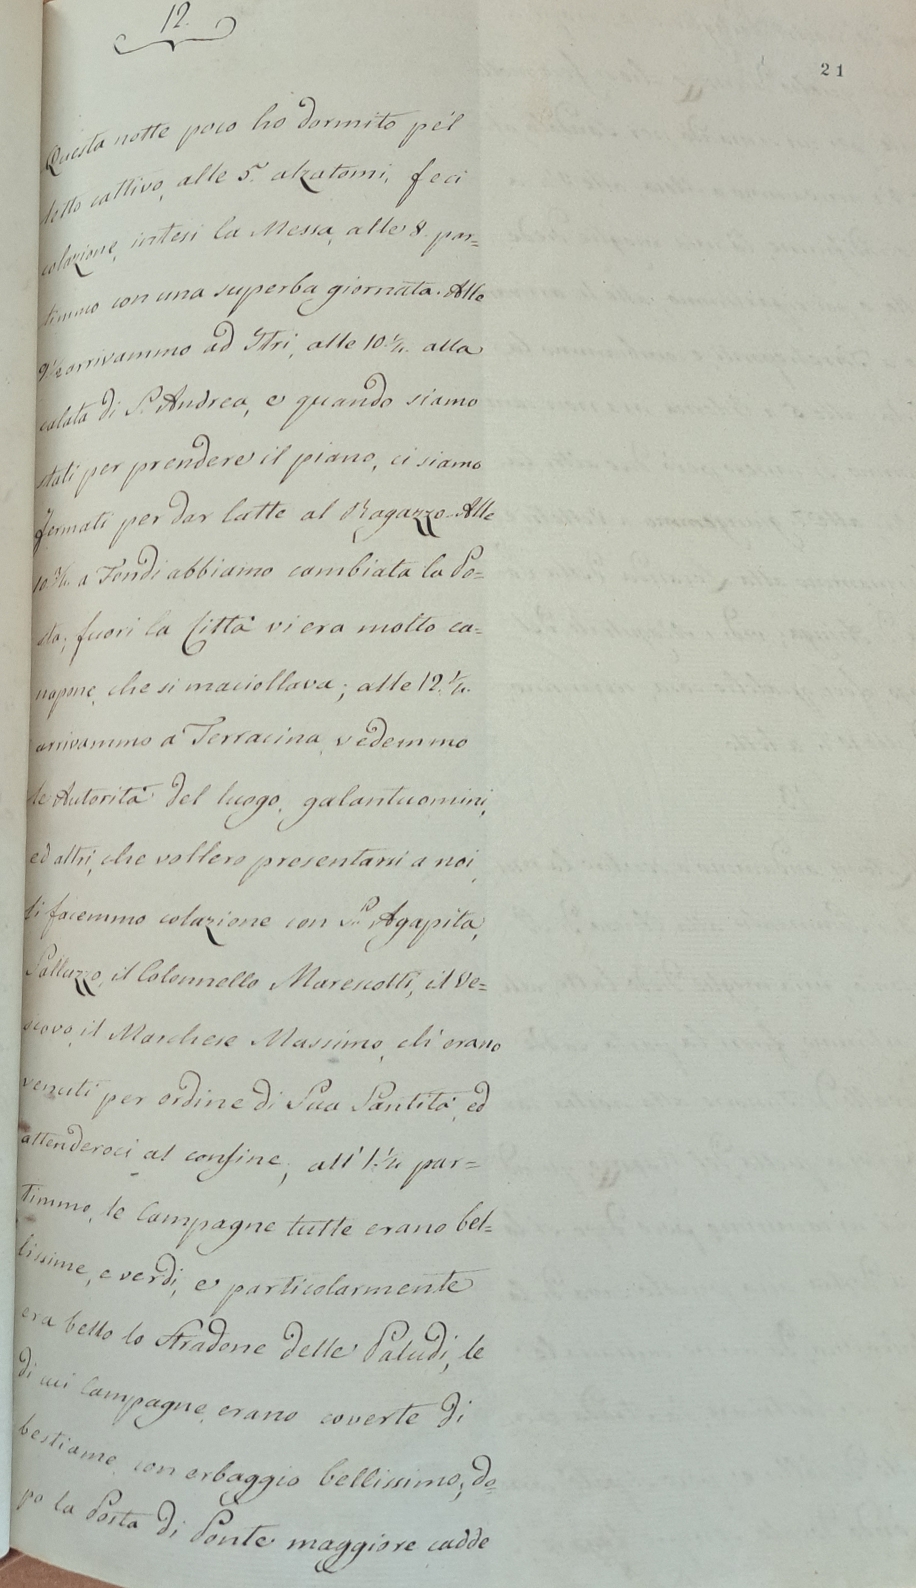 12.
21
Questa notte poco ho dormito pel
letto cattivo, alle 5. alzatomi, feci
colazione, intesi la Messa, alle 8. par=
timmo con una superba giornata. Alle
arrivammo ad Itri, alle 10.¼. alla
calata di S. Andrea, e quando siamo
stati per prendere il piano, ci siamo
fermati per dar latte al Ragazzo. Alle
10.¾. a Fondi abbiamo cambiata la Po=
sta, fuori la Città vi era molto ca=
napone, che si maciollava; alle 12.¼.
arrivammo a Terracina, vedemmo
le Autorità del luogo, galantuomini,
ed altri, che vollero presentarsi a noi,
li facemmo colazione con Agapita,
Palluzzo, il Colonnello Marescotti, il Ve=
scovo, il Marchese Massimo, ch'erano
venuti per ordine di Sua Santità, ed
attenderoci al confine, all' par=
timmo, le Campagne tutte erano bel=
lissime, e verdi, e particolarmente
era bello lo Stradone delle Paludi, le
di cui Campagne, erano coverte di
bestiame con erbaggio bellissimo, do=
po la Posta di Ponte maggiore cadde